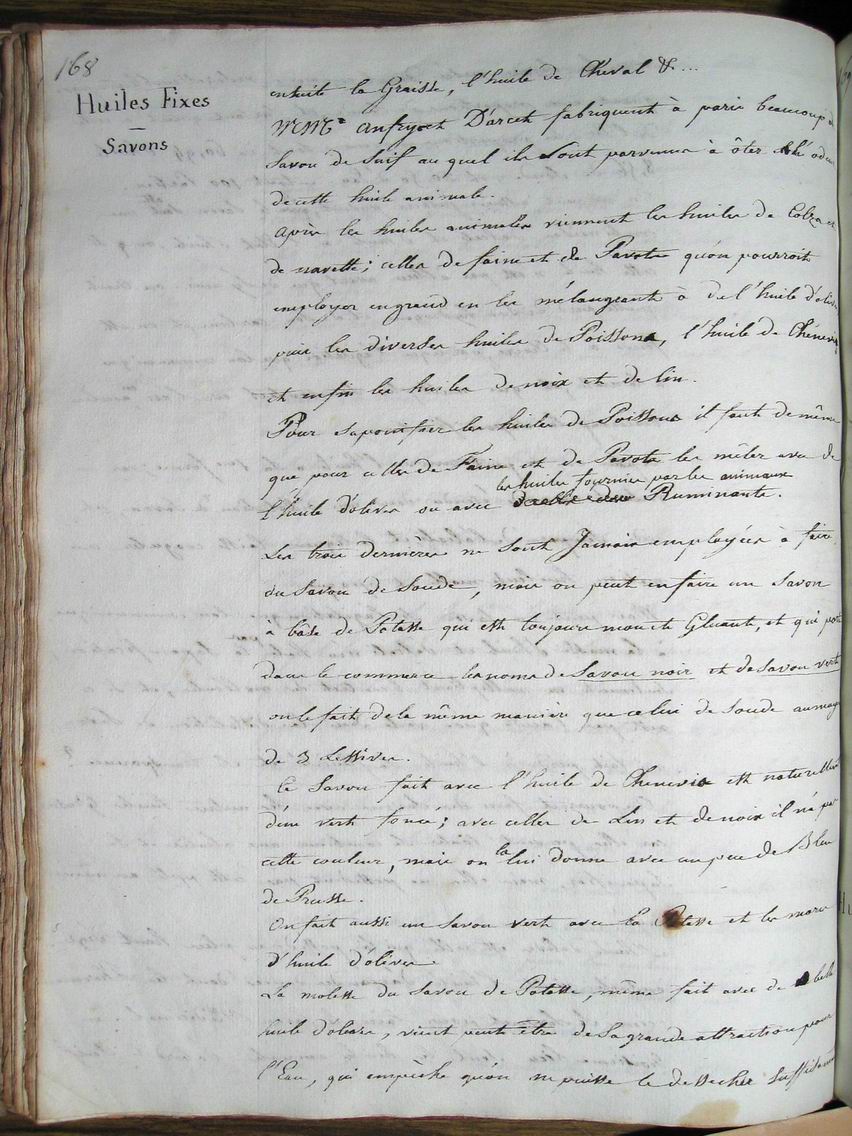 168
Huiles Fixes
—
Savons
ensuite la Graisse, l'huile de Cheval &...
MM.rs Anfryc et D'arcet fabriquent à paris beaucoup de
Savon de Suif au quel ils sont parvenus à ôter l'odeur
de cette huile animale.
après les huiles animales viennent les huiles de Colza et
de navette; celles de faine et de Pavots qu'on pourroit
employer en grand en les mélangeant à de l'huile d'olives
puis les diverses huiles de Poissons, l'huile de Chénevis
et enfin les huiles de noix et de lin.
Pour saponifier les huiles de Poissons il faut de même
que pour celles de Faine et de Pavots les mêler avec de
les huiles fournies par les animaux
l'huile d'olives ou avec Ruminants.
Les trois dernières ne sont Jamais employées à faire
du Savon de Soude, mais on peut en faire un Savon
à base de Potasse qui est toujours mou et Gluant, et qui porte
dans le commerce les noms de Savon noir et de Savon vert
on le fait de la même manière que celui de Soude au moyen
de 3 Lessives.
Ce Savon fait avec l'huile de Chenevis est naturellement
d'un vert foncé; avec celles de Lin et de noix il n'a pas
cette couleur, mais on la lui donne avec un peu de Bleu
de Prusse.
On fait aussi un Savon vert avec la Potasse et les marcs
d'huile d'olives
La molesse du Savon de Potasse, même fait avec de belle
huile d'olives, vient peut être de sa grande attraction pour
l'Eau, qui empèche qu'on ne puisse le dessecher suffisamment